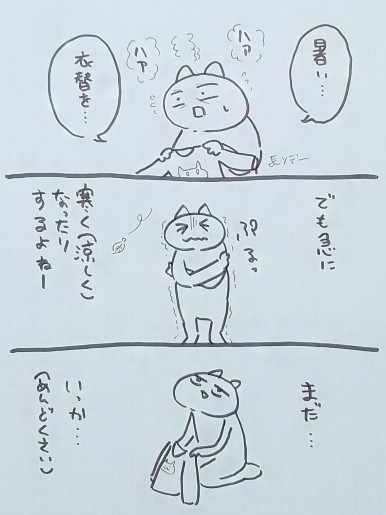 暑い…
ハァ
ハァ
衣替を…
長ソデー
でも急に
ぷるっ
寒く(涼しく)
なったり
するよねー
まだ…
いっか…
(めんどくさい)